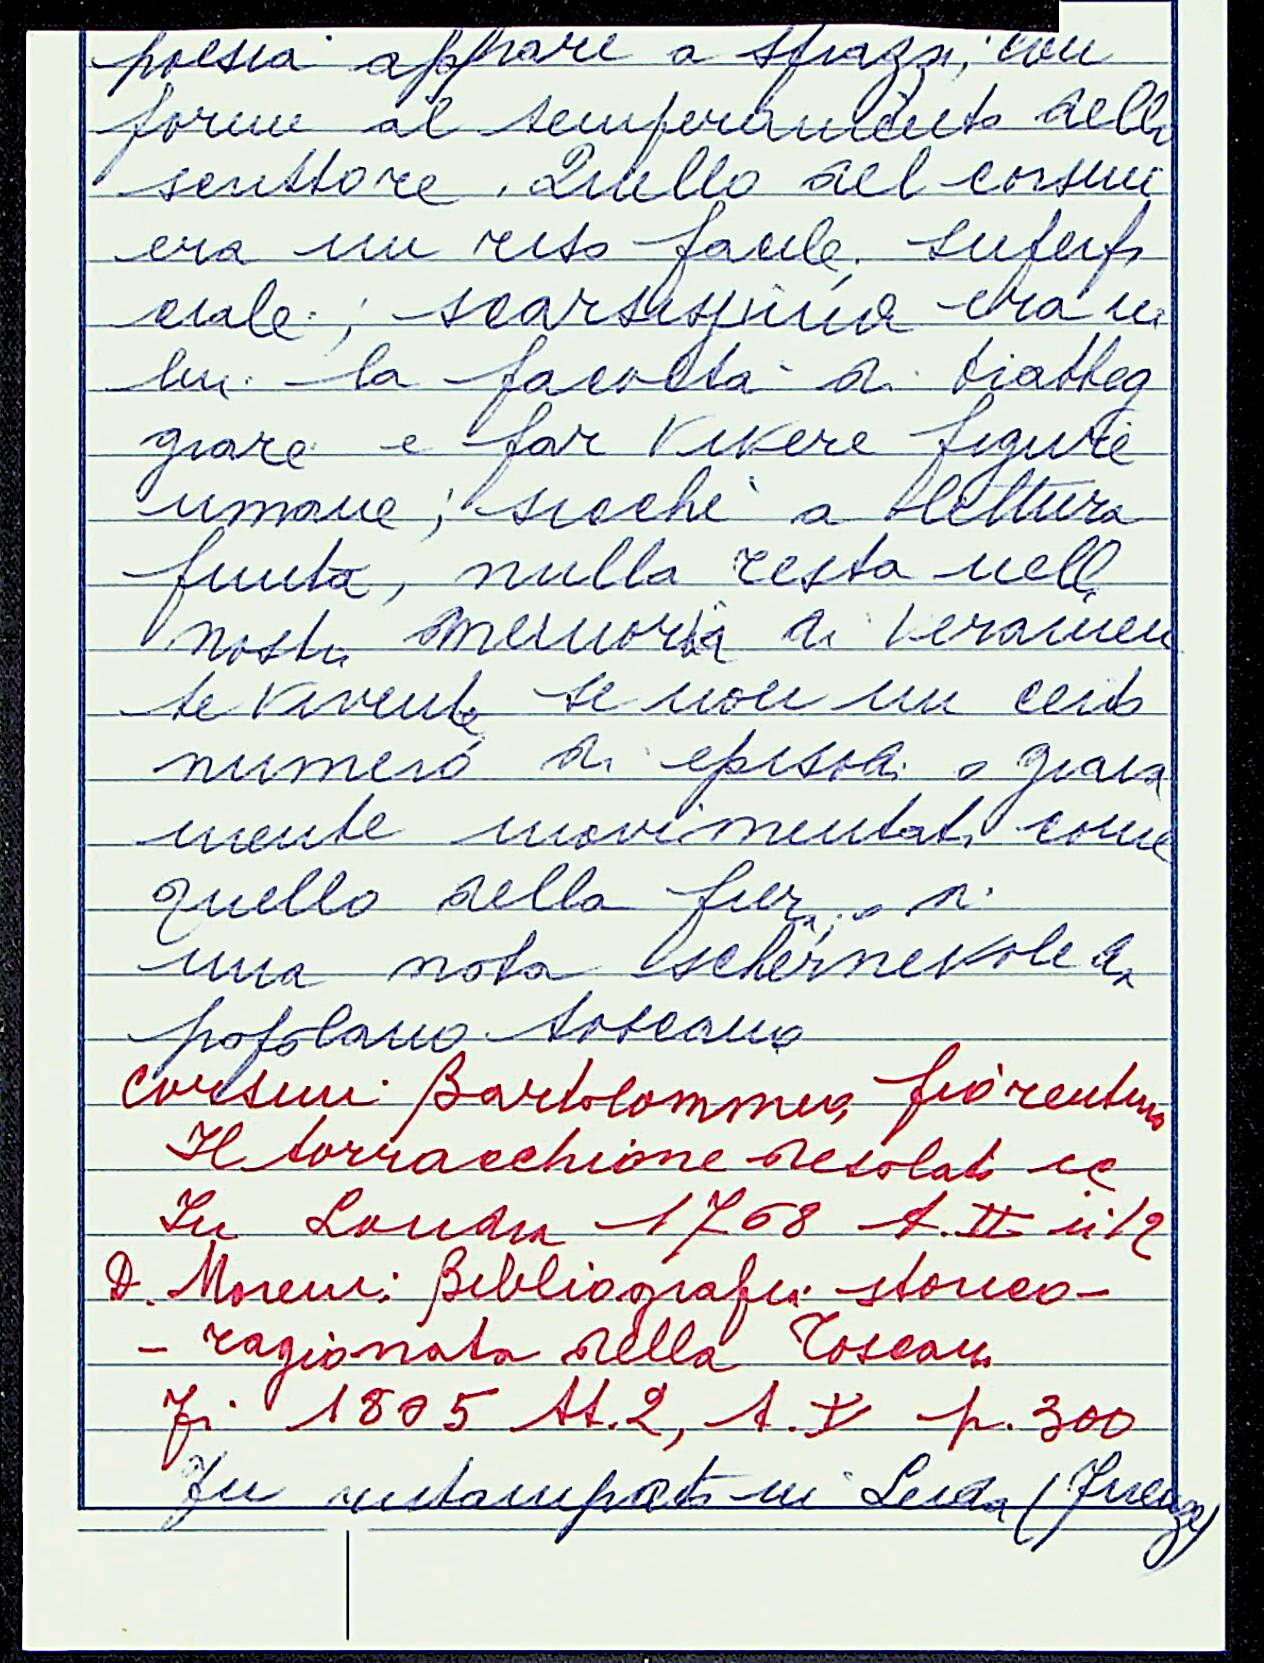 poesia appare a sprazzi, con
forme al temperamento dello
scrittore. Quello del Corsini
era un riso facile, superfi
ciale; scarsissima era in
lui la facoltà di tratteg
giare e far vivere figure
umane; sicché a lettura
finita, nulla resta nella
nostra memoria di veramen
te vivente se non un certo
numero di episodi
mente movimentati come
quello della fiera, o di
una nota schernevole di
popolano toscano
Corsini Bartolommeo, fiorentino
Il torracchione desolato ec
In Londra 1768 t. II in 12
D. Moreni: Bibliografia storico-
- ragionata della Toscana
Fi 1805 tt. 2, t. I p. 300
Fu ristampato in Leida (Firenze)